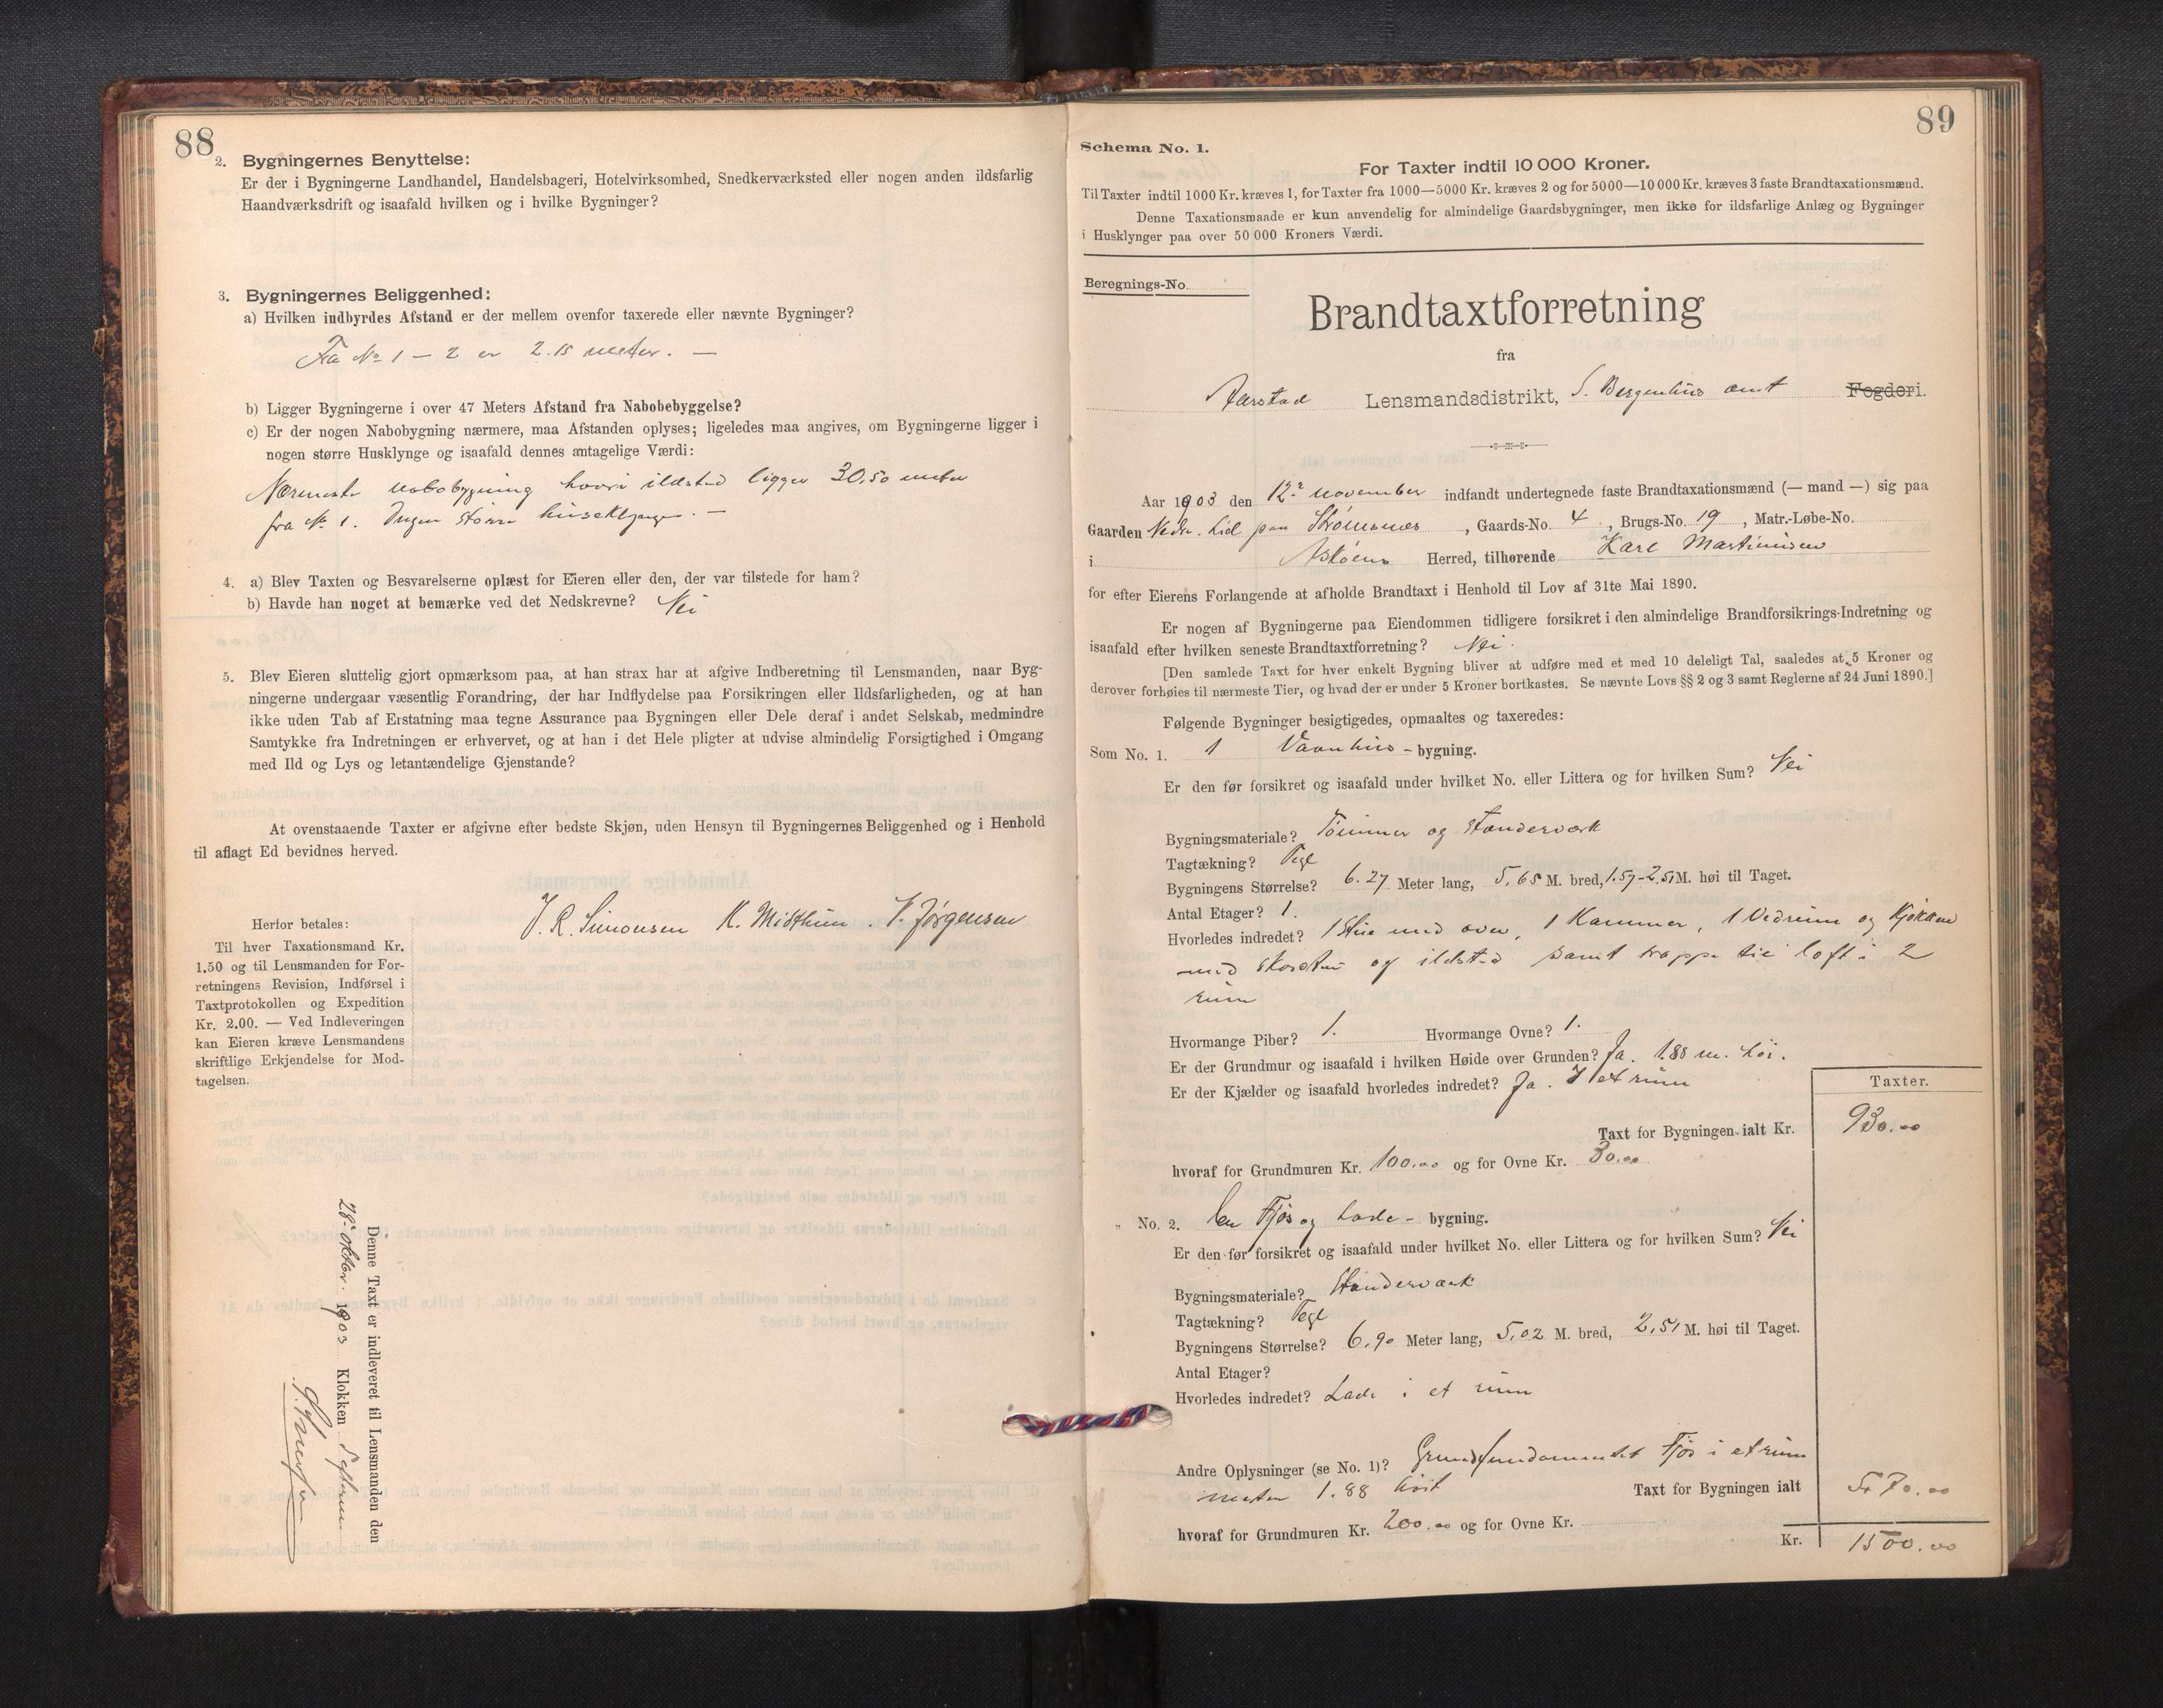 88
2. Bygningernes Benyttelse:
Er der i Bygningerne Landhandel, Handelsbageri, Hotelvirksomhed, Snedkerværksted eller nogen anden ildsfarlig
Haandværksdrift og isaafald hvilken og i hvilke Bygninger?
3. Bygningernes Beliggenhed:
a) Hvilken indbyrdes Afstand er der mellem ovenfor taxerede eller nævnte Bygninger?
Fra No 1 – 2 er 2.15 meter. –
b) Ligger Bygningerne i over 47 Meters Afstand fra Nabobebyggelse?
c) Er der nogen Nabobygning nærmere, maa Afstanden oplyses; ligeledes maa angives, om Bygningerne ligger i
nogen større Husklynge og isaafald dennes antagelige Værdi:
Nærmeste nabobygning hvori ildsted ligger 30,50 meter
fra No 1. Ingen større huseklynge. –
4. a) Blev Taxten og Besvarelserne oplæst for Eieren eller den, der var tilstede for ham?
b) Havde han noget at bemærke ved det Nedskrevne? Nei
5. Blev Eieren sluttelig gjort opmærksom paa, at han strax har at afgive Indberetning til Lensmanden, naar Byg-
ningerne undergaar væsentlig Forandring, der har Indflydelse paa Forsikringen eller Ildsfarligheden, og at han
ikke uden Tab af Erstatning maa tegne Assurance paa Bygningen eller Dele deraf i andet Selskab, medmindre
Samtykke fra Indretningen er erhvervet, og at han i det Hele pligter at udvise almindelig Forsigtighed i Omgang
med Ild og Lys og letantændelige Gjenstande?
At ovenstaaende Taxter er afgivne efter bedste Skjøn, uden Hensyn til Bygningernes Beliggenhed og i Henhold
til aflagt Ed bevidnes herved.
J. R. Simonsen K. Midthun. V. Jørgensen
Herfor betales:
Til hver Taxationsmand Kr.
1.50 og til Lensmanden for For-
retningens Revision, Indførsel i
Taxtprotokollen og Expedition
Kr. 2.00. — Ved Indleveringen
kan Eieren kræve Lensmandens
skriftlige Erkjendelse for Mod-
tagelsen.
Denne Taxt er indleveret til Lensmanden den
28. oktbr. 1903 Klokken
89
Schema No. 1.
For Taxter indtil 10 000 Kroner.
Til Taxter indtil 1000 Kr. kræves 1, for Taxter fra 1000—5000 Kr. kræves 2 og for 5000—10 000 Kr. kræves 3 faste Brandtaxationsmænd.
Denne Taxationsmaade er kun anvendelig for almindelige Gaardsbygninger, men ikke for ildsfarlige Anlæg og Bygninger
i Husklynger paa over 50 000 Kroners Værdi.
Beregnings-No.
Brandtaxtforretning
fra
Aarstad Lensmandsdistrikt, S. Bergenhus amt Fogderi.
Aar 1903 den 12te november indfandt undertegnede faste Brandtaxationsmænd (— mand —) sig paa
Gaarden Nedre Lid paa Strømsnes, Gaards-No. 4, Brugs-No. 19, Matr.-Løbe-No.
i Askøens Herred, tilhørende Karl Martinusen
for efter Eierens Forlangende at afholde Brandtaxt i Henhold til Lov af 31te Mai 1890.
Er nogen af Bygningerne paa Eiendommen tidligere forsikret i den almindelige Brandforsikrings-Indretning og
isaafald efter hvilken seneste Brandtaxtforretning? Nei.
[Den samlede Taxt for hver enkelt Bygning bliver at udføre med et med 10 deleligt Tal, saaledes at 5 Kroner og
derover forhøies til nærmeste Tier, og hvad der er under 5 Kroner bortkastes. Se nævnte Lovs §§ 2 og 3 samt Reglerne af 24 Juni 1890.]
Følgende Bygninger besigtigedes, opmaaltes og taxeredes:
Som No. 1. 1 Vaanhus-bygning.
Er den før forsikret og isaafald under hvilket No. eller Littera og for hvilken Sum? Nei
Bygningsmateriale? Tømmer og standerværk
Tagtækning? Tegl
Bygningens Størrelse? 6.27 Meter lang, 5,65 M. bred, 1.57-2,51 M. høi til Taget.
Antal Etager? 1.
Hvorledes indredet? 1 Stue med oven, 1 Kammer, 1 Vedrum og Kjøkken
med skorsten og ildsted samt trappe til loft i 2
rum
Hvormange Piber? 1. Hvormange Ovne? 1.
Er der Grundmur og isaafald i hvilken Høide over Grunden? Ja. 1.88 m. høi.
Er der Kjælder og isaafald hvorledes indredet? Ja. I et rum
Taxter.
Taxt for Bygningen ialt Kr. 930.00
hvoraf for Grundmuren Kr. 100.00 og for Ovne Kr. 30.00
„ No. 2. En Fjøs og Lade-bygning.
Er den før forsikret og isaafald under hvilket No. eller Littera og for hvilken Sum? Nei
Bygningsmateriale? Standerværk
Tagtækning? Tegl
Bygningens Størrelse? 6,90 Meter lang, 5,02 M. bred, 2,51 M. høi til Taget.
Antal Etager?
Hvorledes indredet? Lade i et rum
Andre Oplysninger (se No. 1)? Grundfundamentet Fjøs i et rum
muren 1.88 høit Taxt for Bygningen ialt 570.00
hvoraf for Grundmuren Kr. 200.00 og for Ovne Kr.
Kr. 1500.00